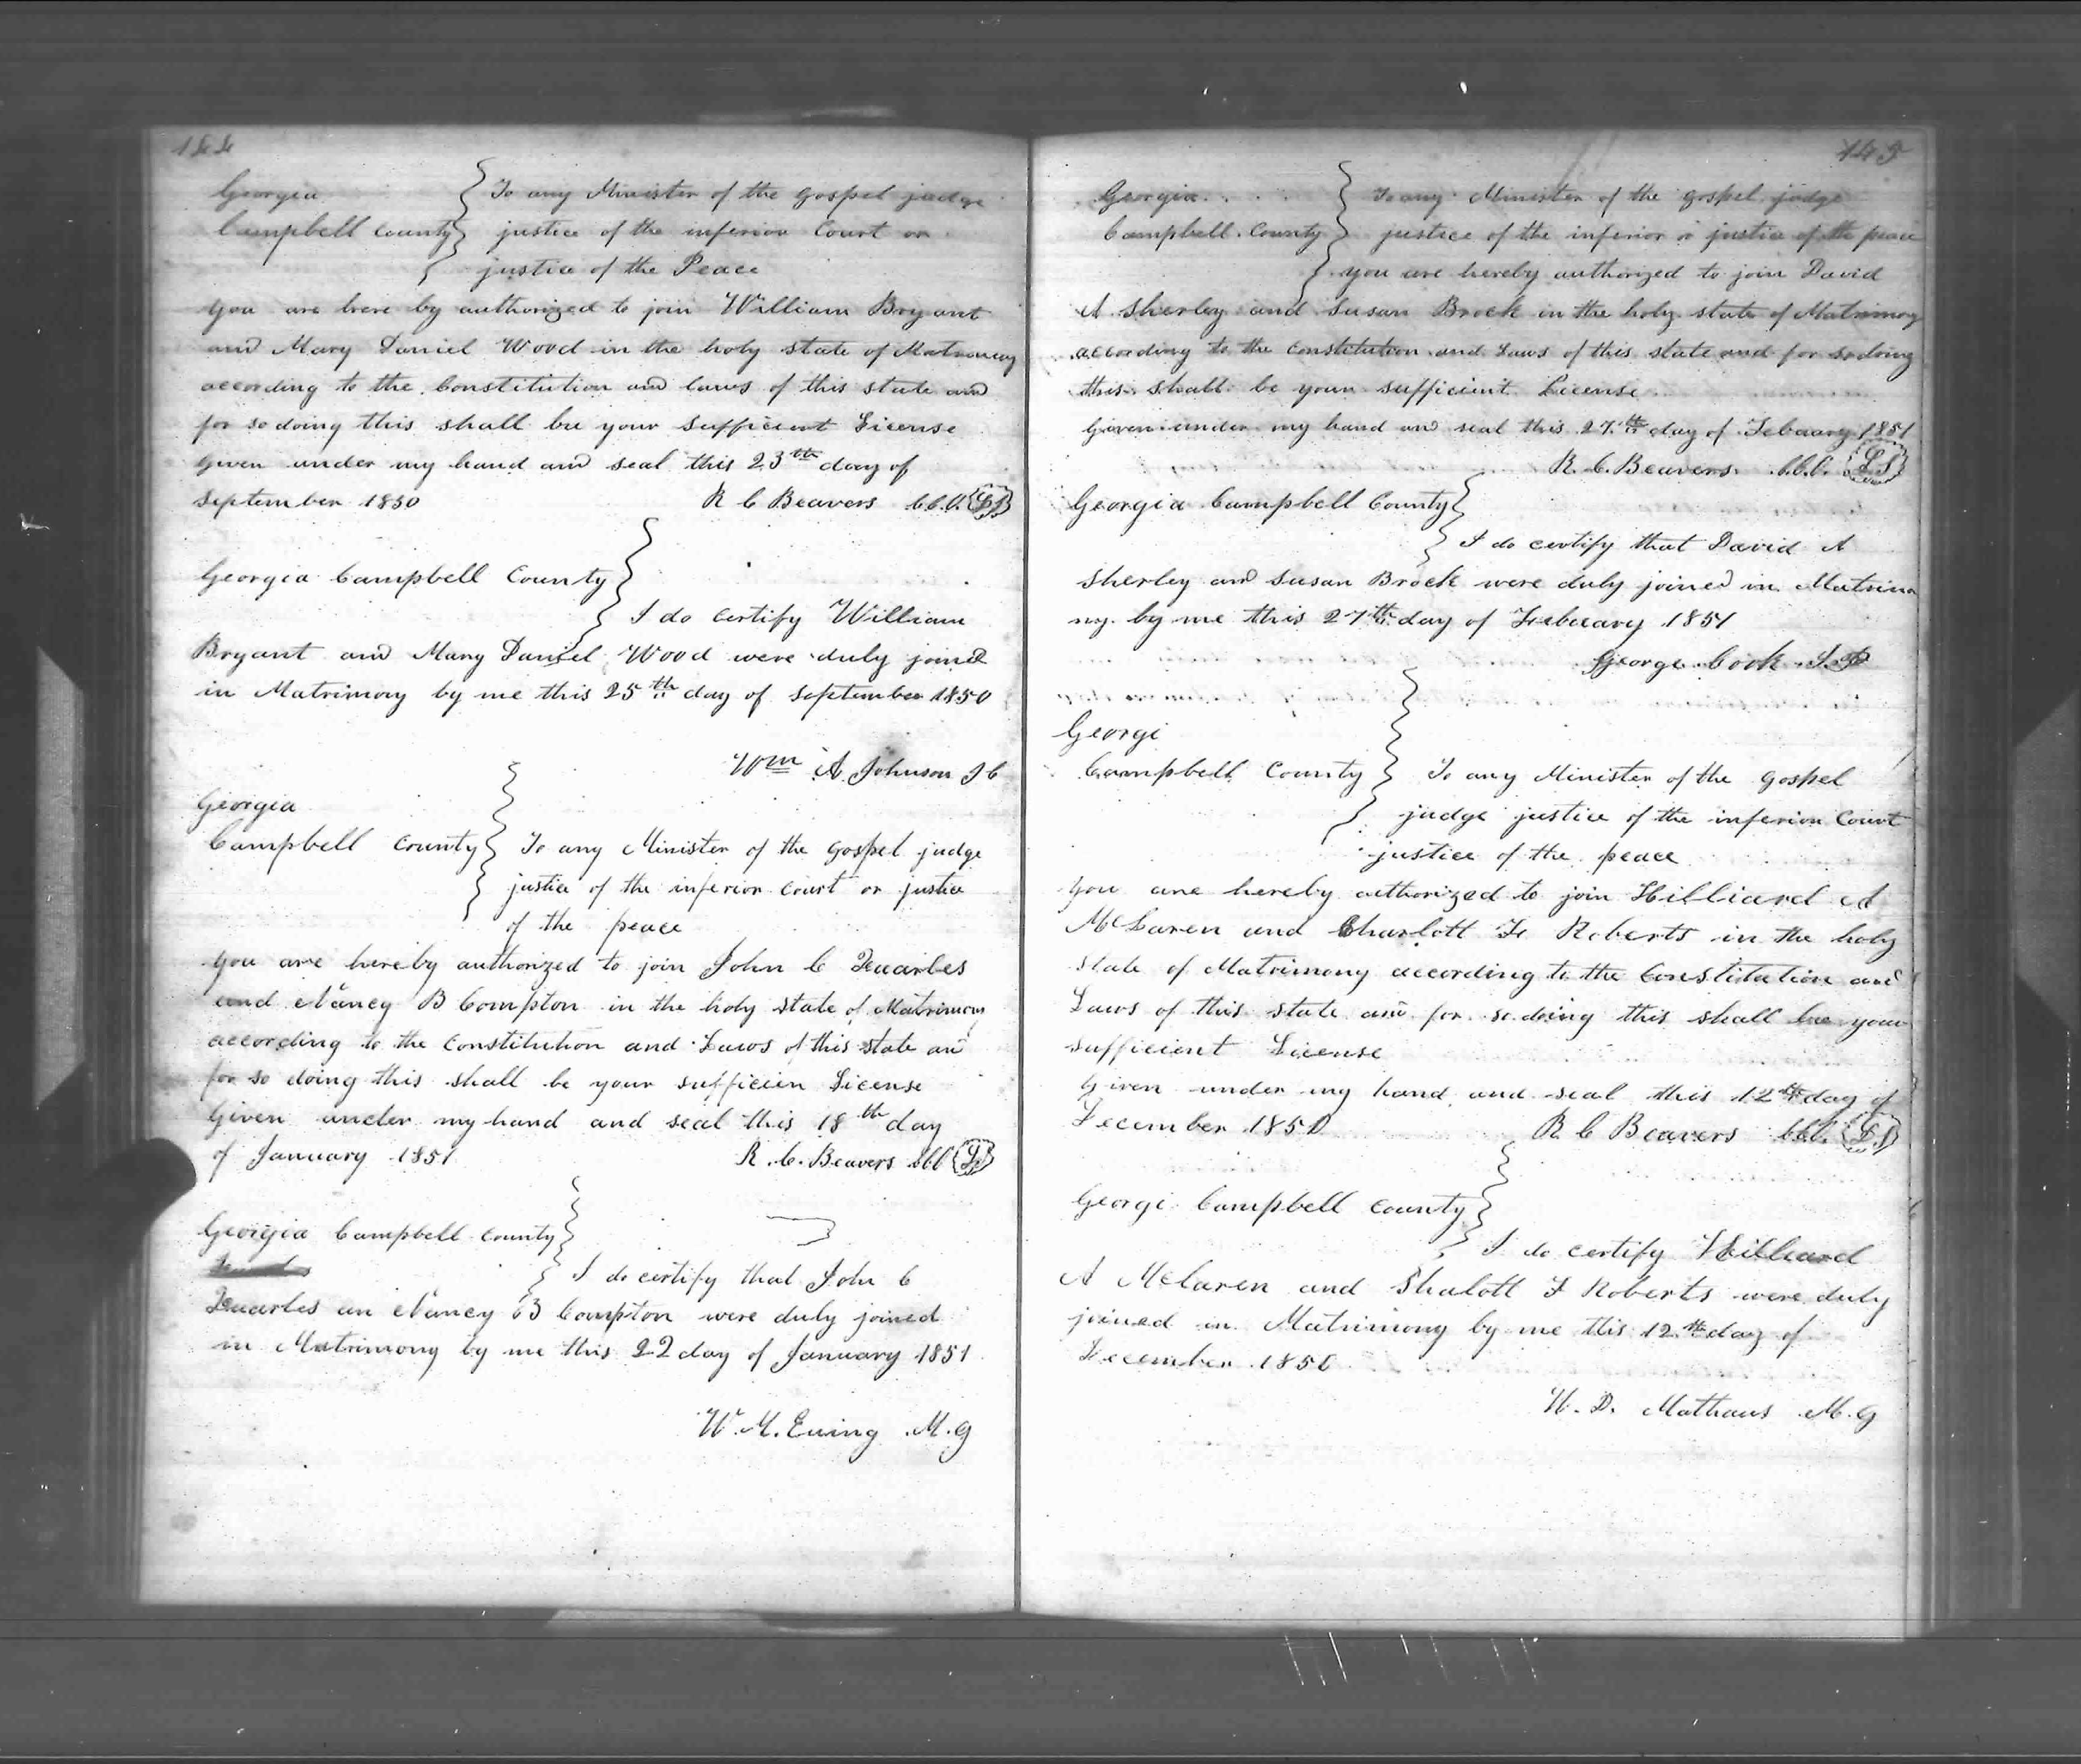 144
Georgia
Campbell County
To any Minister of the gospel judge
justice of the inferior Court or
justice of the Peace
you are here by authorized to join William Bryant
and Mary Daniel Wood in the holy state of Matrimony
according to the Constitution and laws of this state and
for so doing this shall bee your sufficient License
given under my hand and seal this 23th day of
September 1850 R C Beavers C.C.O. LS
Georgia Campbell County
I do certify William
Bryant and Mary Daniel Wood were duly joined
in Matrimony by me this 25th day of September 1850
Wm A. Johnson J C
Georgia
Campbell County To any Minister of the gospel judge
justice of the inferior court or justice
of the peace
you are hereby authorized to join John C Quarles
and Nancy B Compton in the holy state of Matrimony
according to the Constitution and Laws of this state an
for so doing this shall be your sufficien License
Given under my hand and seal this 18th day
of January 1851 R. C. Beavers CCC LS
Georgia Campbell County
I do certify that John C
Quarles an Nancy B Compton were duly joined
in Matrimony by me this 22 day of January 1851
W. M. Ewing M.G
145
Georgia
Campbell County
To any Minister of the gospel judge
justice of the inferior or justice of the peace
you are hereby authorized to join David
A Sherley and Susan Brock in the holy state of Matrimony
according to the constitution and Laws of this state and for so doing
this shall be your sufficient License
Given under my hand and seal this 27th day of Febuary 1851
R. C. Beavers. C.C.C. L.S
Georgia Campbell County
I do certify that David A
Sherley and Susan Brock were duly joined in Matrimo
ny by me this 27th day of Febuary 1851
George Cook J.P
Georgi
Campbell County To any Minister of the gospel
judge justice of the inferior Court
justice of the peace
you are hereby authorized to join Hilliard A
McLaren and Charlott F Roberts in the holy
state of Matrimony according to the Constitution and
Laws of this state and for so doing this shall bee your
sufficient License
Given under my hand and seal this 12th day of
December 1850 R C Beavers CCC. L.S
Georgi Campbell County
I do certify Hilliard
A Mclaren and Shalott F Roberts were duly
joined in Matrimony by me this 12th day of
December 1850
W. D. Mathaus M.G